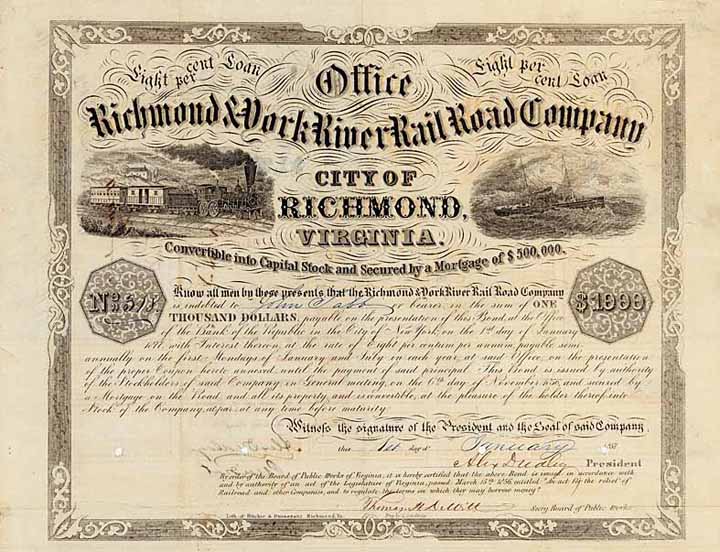 Eight per cent Loan
Office
Eight per cent Loan
Richmond & York River Rail Road Company
CITY OF
RICHMOND,
VIRGINIA.
Convertible into Capital Stock and Secured by a Mortgage of $500,000.
No 518
$1000
Know all men by these presents that the Richmond & York River Rail Road Company
is indebted to John Tabb or bearer in the sum of ONE
THOUSAND DOLLARS, payable on the presentation of this Bond, at the Office
of the Bank of the Republic in the City of New York, on the 1st day of January
with Interest thereon at the rate of Eight per centum per annum payable semi
annually on the first Mondays of January and July in each year, at said Office, on the presentation
of the proper Coupon hereto annexed until the payment of said principal. This Bond is issued by authority
of the Stockholders of said Company in General meeting, on the 6th day of November and secured by
a Mortgage on the Road and all its property, and is convertible, at the pleasure of the holder thereof, into
Stock of the Company, at par, at any time before maturity.
Witness the signature of the President and the Seal of said Company,
this 1st day of January
Alex Dudley President
By order of the Board of Public Works of Virginia, it is hereby certified that the above Bond is issued in accordance with
and by authority of an act of the Legislature of Virginia, passed March 15th 1856, entitled "An act for the relief of
Railroad and other Companies, and to regulate the terms in which they may borrow money."
Thomas H DeWitt Secy Board of Public Works
Lith. of Ritchie & Dunnavant Richmond Va.